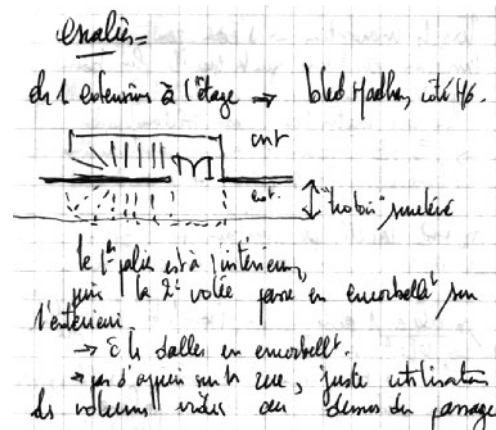 escalier =
ds 1 extension à l'étage → bled Madhen, côté H6.
int
ext.
"trottoir" surelevé
le 1er palier est à l'intérieur,
puis la 2e volée passe en encorbellt sur
l'extérieur.
→ les dalles en encorbellt.
→ pas d'appui sur la rue, juste utilisation
des volumes vides au dessus du passage